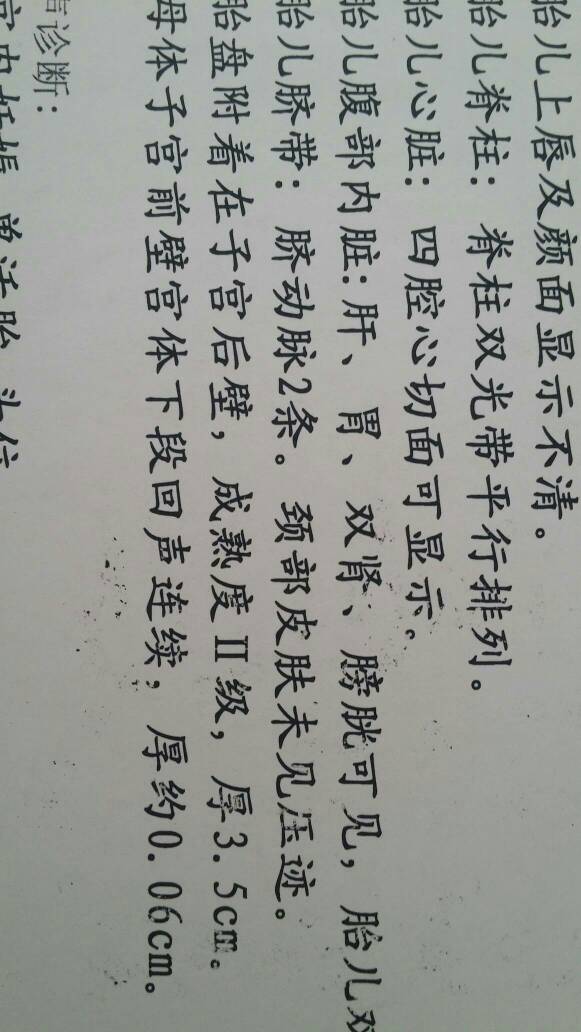 胎儿上唇及颜面显示不清。
胎儿脊柱: 脊柱双光带平行排列。
胎儿心脏: 四腔心切面可显示。
胎儿腹部内脏:肝、胃、双肾、膀胱可见, 胎儿双
胎儿脐带: 脐动脉2条。颈部皮肤未见压迹。
胎盘附着在子宫后壁, 成熟度II级, 厚3.5cm。
母体子宫前壁宫体下段回声连续, 厚约0.06cm。
声诊断:
宫内妊娠 单活胎 头位